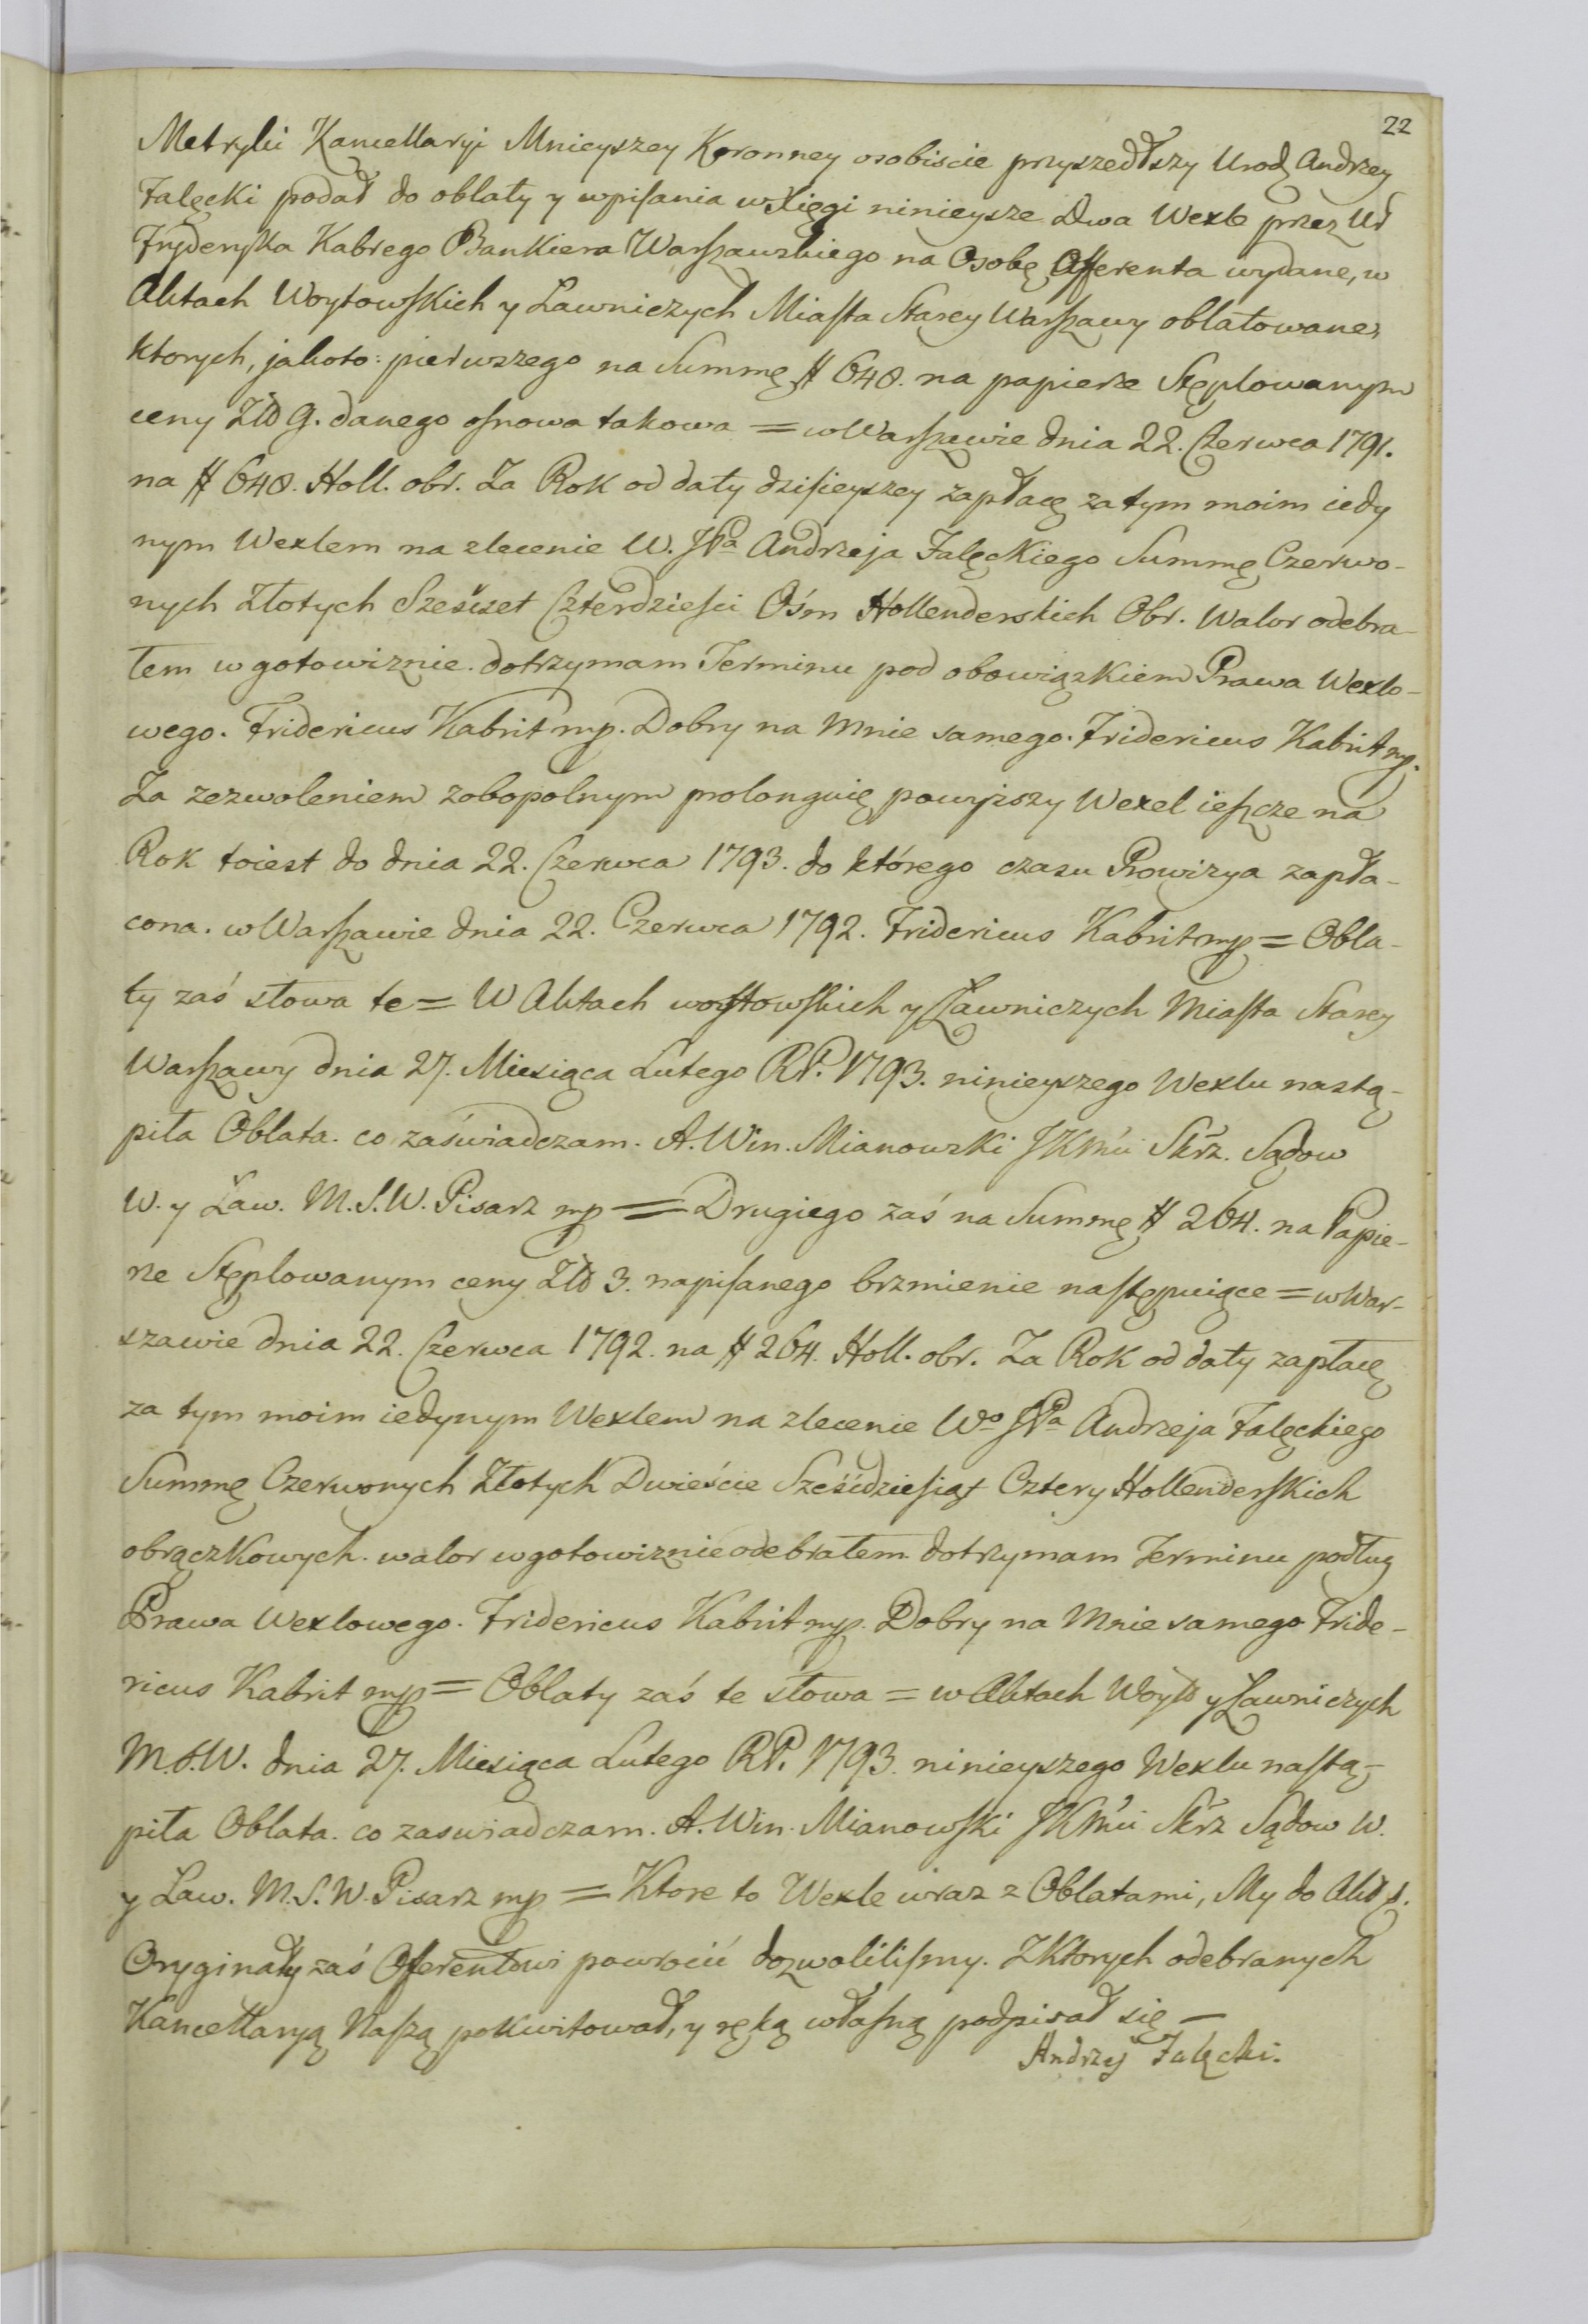 22
Metryki Kancellaryi Mnieyszey Koronney osobiscie przyszedłszy Urod Andrzey
Falęcki podał do oblaty y wpisania w Xięgi ninieysze Dwa Wexle przez Ur
Fryderyka Kabrego Bankiera Warszawskiego na Osobę Offerenta wydane, w
Aktach Woytowskich y Ławniczych Miasta Starey Warszawy oblatowane,
Ktorych, jakoto: pierwszego na Summę # 648. na papierze Stęplowanym
ceny Złł 9. danego osnowa takowa = w Warszawie dnia 22. Czerwca 1791.
na # 648. Holl. obr. Za Rok od daty dzisieyszey zapłacę za tym moim iedy
nym Wexlem na zlecenie W. JPa Andrzeja Falęckiego Summę Czerwo-
nych Złotych Sześćset Czterdzieści Ośm Hollenderskich Obr. Walor odebra-
łem w gotowiznie. dotrzymam Terminu pod obowiązkiem Prawa Wexlo-
wego. Fridericus Kabrit mp. Dobry na Mnie samego. Fridericus Kabrit mp.
Za zezwoleniem zobopolnym prolonguię powyższy Wexel ieszcze na
Rok toiest do dnia 22. Czerwca 1793. do którego czasu Prowizya zapła-
cona. w Warszawie dnia 22. Czerwca 1792. Fridericus Kabrit mp = Obla-
ty zaś słowa te = W Aktach woytowskich y Ławniczych Miasta Starey
Warszawy dnia 27. Miesiąca Lutego RP. 1793. ninieyszego Wexlu nastą-
piła Oblata. co zaświadczam. A. Win. Mianowski JKMci Skrz. Sądow
W. y Ław. M. S. W. Pisarz mp = Drugiego zaś na Summę # 264. na Papie-
rze Stęplowanym ceny Złł 3. napisanego brzmienie następuiące = w War-
szawie dnia 22. Czerwca 1792. na # 264. Holl. obr. Za Rok od daty zapłacę
za tym moim iedynym Wexlem na zlecenie Wo JPa Andrzeja Falęckiego
Summę Czerwonych Złotych Dwieście Sześćdziesiąt Cztery Hollenderskich
obrączkowych. walor w gotowiznie odebrałem. dotrzymam Terminu podług
Prawa Wexlowego. Fridericus Kabrit mp. Dobry na Mnie samego Fride-
ricus Kabrit mp = Oblaty zaś te słowa = w Aktach Woytł y Ławniczych
M. S. W. dnia 27. Miesiąca Lutego RP. 1793. ninieyszego Wexlu nastą-
piła Oblata. co zaswiadczam. A. Win. Mianowski JKMci Skrz Sądow W.
y Ław. M. S. W. Pisarz mp = Ktore to Wexle wraz z Oblatami, My do Akt p.
Oryginały zaś Offerentowi powrocić dozwolilismy. Z Ktorych odebranych
Kancellaryą Naszą pokwitował, y ręką własną podpisał się –
Andrzej Falęcki.